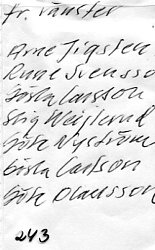 fr. vänster
Arne Jigsten
Rune Svensso
Gösta Larsson
Stig Weiglund
Göte Nyström
Gösta Carlson
Göte Olausson
243